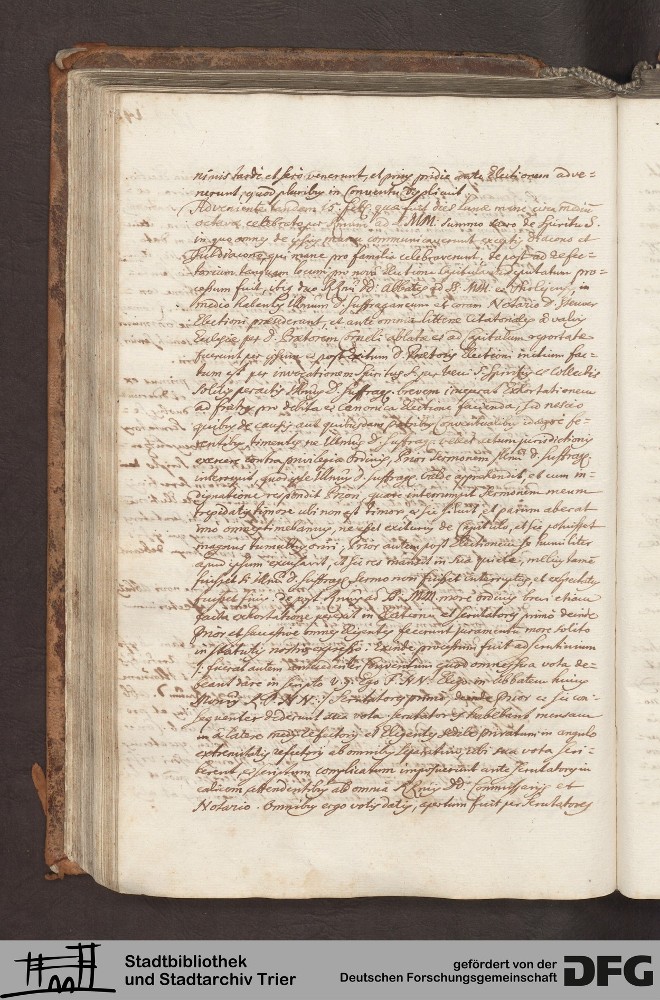 nimis tardè et serò venerunt, et prius pridie ante Electionem adve=
nerunt, quod pluribus in Conventu displicuit
Adveniente tandem 15 feb: quae fuit dies lunae mane circa mediam
octavam celebratum per Rmum ad S. MM. summo sacro de Spiritu S.
in quo omnes de communicaverunt exceptis Diacono et
Subdiacono, qui mane pro familia celebraverunt, de post ad refec=
torium tanquam locum pro novi electione capitulari deputatum pro=
cessum fuit, ubi duo Rmi DD. Abbates ad SS. MM. et , in
medio habentes Illmum D. Suffraganeum et coram Notario D.
Electioni praesiderunt, et ante omnia litterae citatoriales ad valvas
Ecclesiae per D. Praetorem ablatae et ad capitulum reportatae
fuerunt per ipsum et post exitum D. Praetoris Electioni initium fac=
tum est per invocationem Spiritus S. per veni S. Spiritus et Collectis
solitis peractis Illmus D. Suffrag: brevem inceperat Exhortationem
ad fratres pro debita et canonica electione facienda, sed nescio
quibus de causis aut quibusdam patribus Conventualibus id aegrè fe=
rentibus, timentes ne Illmus D. Suffrag: vellet actum jurisdictionis
exercere contra privilegia ordinis, Prior sermonem Illmi D. Suffrag:
interrupit, quod ipse Illmus D. Suffrag. valdè apprehendit, et cum in=
dignatione respondit Priori, quare interrumpit sermonem meum
trepidat timore ubi non est timor et sic siluit, et parum aberat
imò omnes timebamus, ne esset exiturus de Capitulo, et sic potuisset
magnus tumultus oriri; Prior autem post Electionem se humiliter
apud ipsum excusavit, et sic res mansit in sua quiete, melius tamen
fuisset si Illmi D. Suffrag: sermo non fuisset interruptus, et expectatus
fuisset finis. de post Rmus ad SS. MM. more ordinis brevi etiam
facta exhortatione perrexit in Electione et scrutatores primo deinde
Prior et sic omnes Eligentes fecerunt juramentum more solito
in statutis nostris expresso. Exinde processum fuit ad scrutinium
fuerat autem antecedenter conventum quod omnes sua vota de=
beant dare in scripto v. g. Ego F. N. N. Eligo in Abbatem huius
Monrii R. P. N. N. Scrutatores primo, deinde Prior et sic con=
sequenter dederunt sua vota. scrutatores habebant mensam
in à latere refectorii et Eligentes sedile privatum in angulo
extremitatis refectorii ab omnibus separatim, ubi sua vota scri=
berent, et scriptum complicatum imposuerunt ante scrutatores in
calicem attendentibus ad omnia Rmis DD. Commissariis et
Notario. Omnibus ergo votis datis, apertum fuit per Scrutatores
Stadtbibliothek
und Stadtarchiv Trier
gefördert von der
Deutschen Forschungsgemeinschaft
DFG